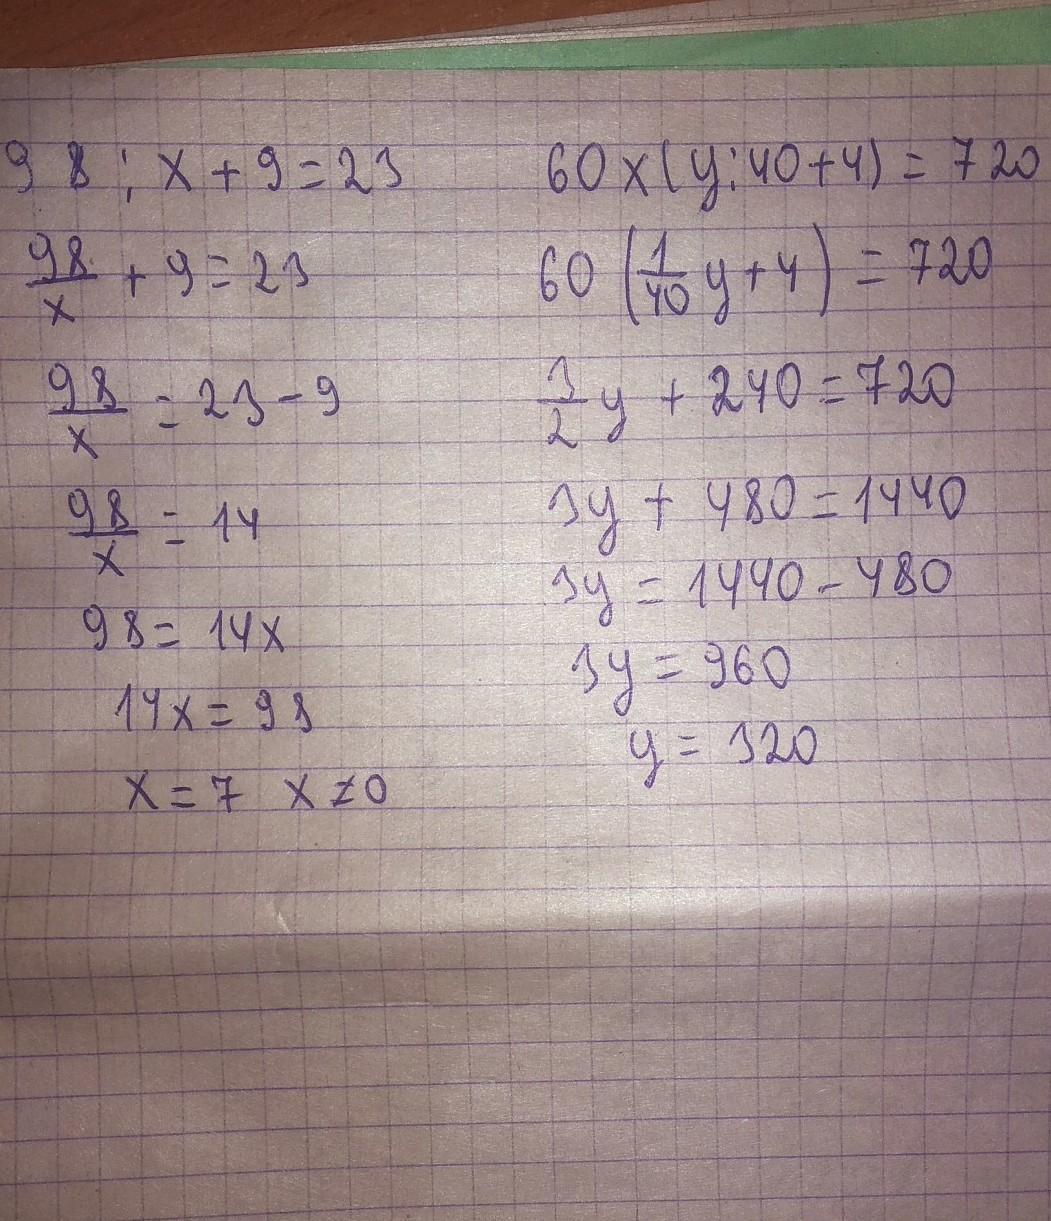 98 : x + 9 = 23
98/x + 9 = 23
98/x = 23 - 9
98/x = 14
98 = 14x
14x = 98
x = 7 x ≠ 0
60 x (y : 40 + 4) = 720
60 (1/40 y + 4) = 720
3/2 y + 240 = 720
3y + 480 = 1440
3y = 1440 - 480
3y = 960
y = 320